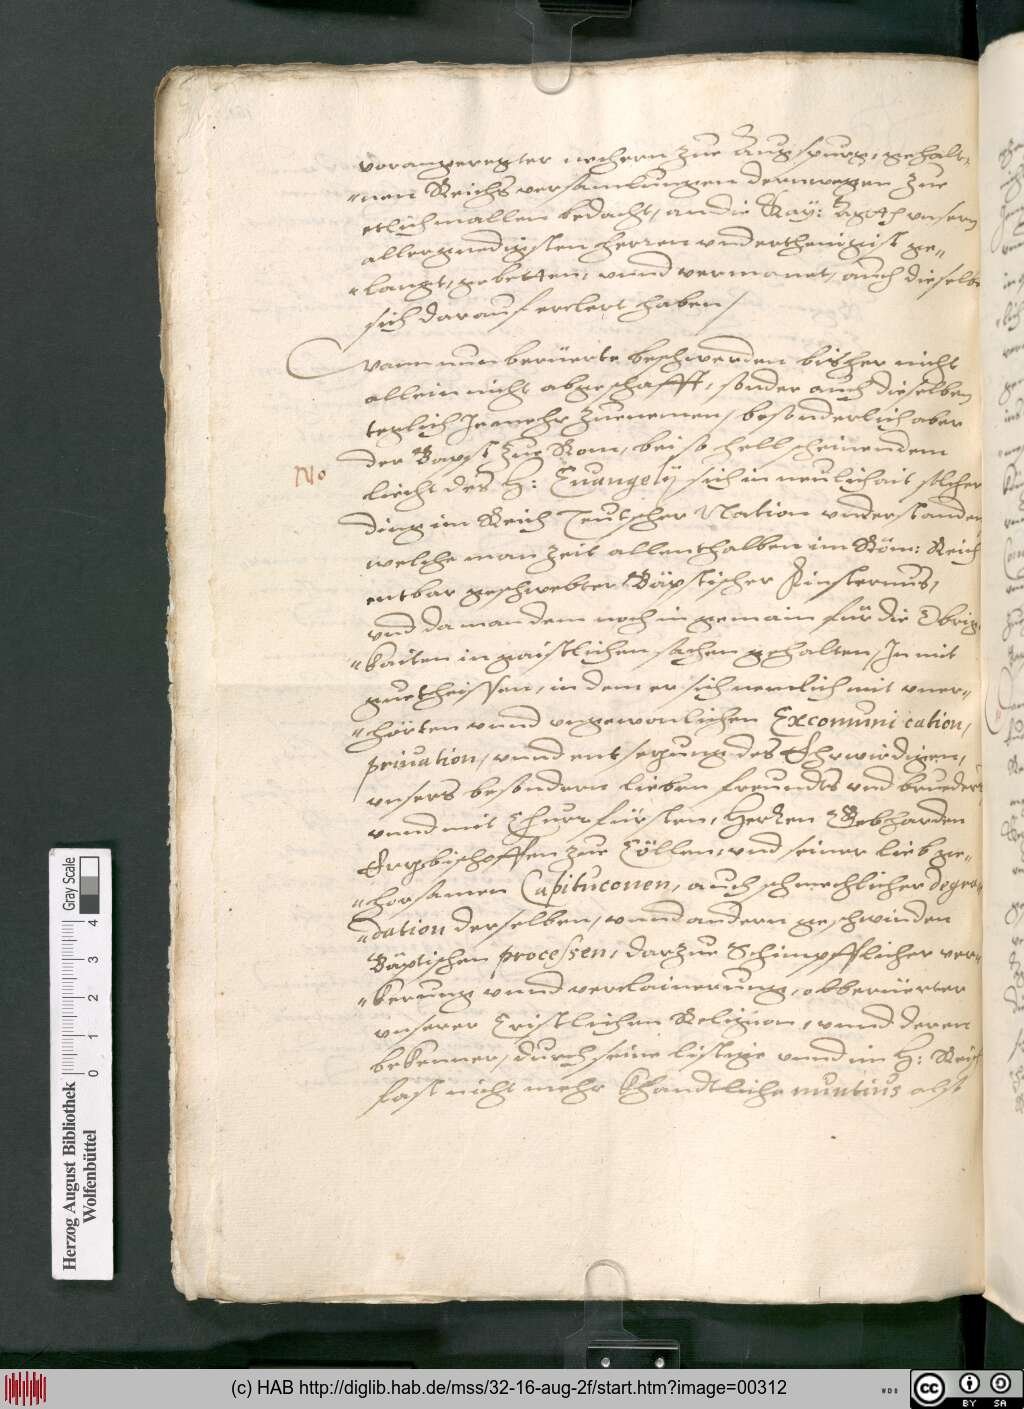 vorangeregter nehern zue Augspurg, gehalt,
"nen Reichs versamlungen dernwegen zue
etlichmallen bedacht, an die Kay: Mgtt: vnsern
allergnedigisten herren vnderthenigist ge"
"langt, gebetten, vnnd vermanet, auch dieselb
sich darauf erclert haben /
Wann nun berüerte beschwerden bisher nicht
allein nicht abgeschafft, sonder auch dieselben
teglich Je mehr zuenemen / besonderlich aber
No der Bapst zue Rom, bei so hell scheinendem
liecht des H: Euangelÿ sich in neulichait solcher
ding im Reich Teutscher Nation vnderstanden
welche man zeit allenthalben im Röm: Reich
entbar geschwebter Bäpstischer Finsternus,
vnd da man dem noch in gemain für die Obrig,
"kaiten in gaistlichen sachen gehalten, Jn mit
guetheissen, in dem er sich nemlich mit vner"
"hörten vnnd vngewonlichen Excomunication,
priuation, vnnd entsezung des Ehrwirdigen,
vnsers besondern lieben freundts vnd brueders
vnnd mit Churfürsten, Herren Gebharden
Erzbischoffen zue Cöllen, vnd seiner lieb ge"
"horsamen Capituconen, auch schmechlicher degra"
"dation derselben, vnnd andern geschwinden
Bäptischen processen, darzue Schimpfflicher ver"
"kerung vnnd verclainerung, obberüerter
vnserer Cristlichen Religion, vnnd deren
bekenner, durch seine listige vnnd im H: Reich
fast nicht mehr khandtliche nuntius alst
Herzog August Bibliothek
Wolfenbüttel
0 1 2 3 4
Gray Scale
(c) HAB http://diglib.hab.de/mss/32-16-aug-2f/start.htm?image=00312
WDB
cc BY SA